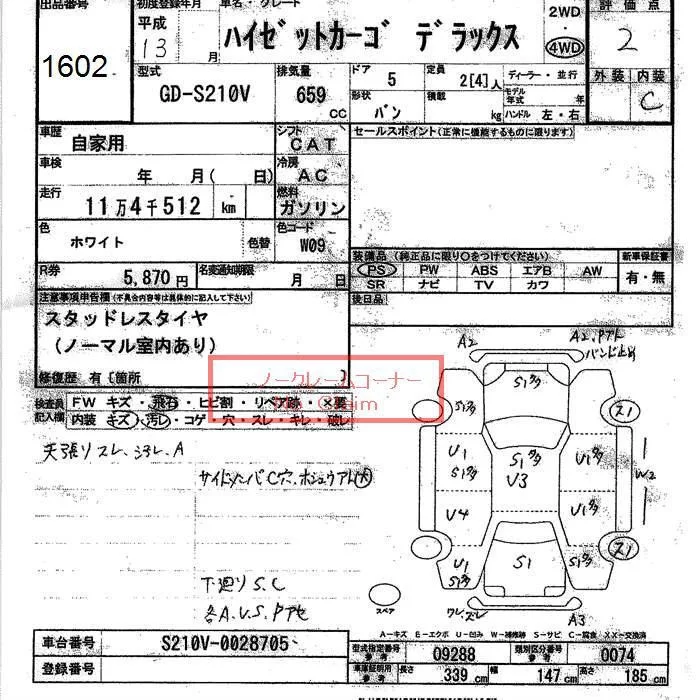 出品番号
1602
初度登録年月
平成
13 月
車名・グレード
ハイゼットカーゴ デラックス
2WD
・
4WD
評価点
2
型式
GD-S210V
排気量
659
CC
ドア 5
定員 2[4]人
ディーラー・並行
形状 バン
積載 kg
モデル年式 年
ハンドル 左・右
外装 内装
C
車歴 自家用
シフト CAT
車検 年 月( 日)
冷房 AC
走行 11万4千512 km
燃料 ガソリン
色 ホワイト 色替
色コード W09
R券 5,870円
名変通知期限 月 日
セールスポイント(正常に機能するものに限ります)
装備品(純正品に限り○をつけてください)
新車保証書
PS PW ABS エアB AW
SR ナビ TV カワ
有・無
後日品
注意事項申告欄(不具合内容等は具体的に記入して下さい)
スタッドレスタイヤ
(ノーマル室内あり)
修復歴 有〔箇所 〕
ノークレームコーナー
No Claim
検査員記入欄
FW キズ・飛石・ヒビ割・リペア跡・×要
内装 キズ・汚レ・コゲ・穴・スレ・キレ・破レ
天張りスレ、ヨゴレ、A
サイドシルパC穴、ホシュウアト(大)
下廻りS.C
各A.U.S.Pアセ
A2
A2,Pアト
バンド止め
S1多
S1多
ス1
U1
S1多
S1多
U3
U1多
W2
U4
U1
U1
S1多
S1
S1多
ス1
スペア
ワレ、ズレ
A3
A-キズ E-エクボ U-凹み W-補修跡 S-サビ C-腐食 XX-交換済
車台番号 S210V-0028705
登録番号
型式指定番号 参考 09288
類別区分番号 参考 0074
車車証明用 参考 長さ 339 cm 幅 147 cm 高さ 185 cm